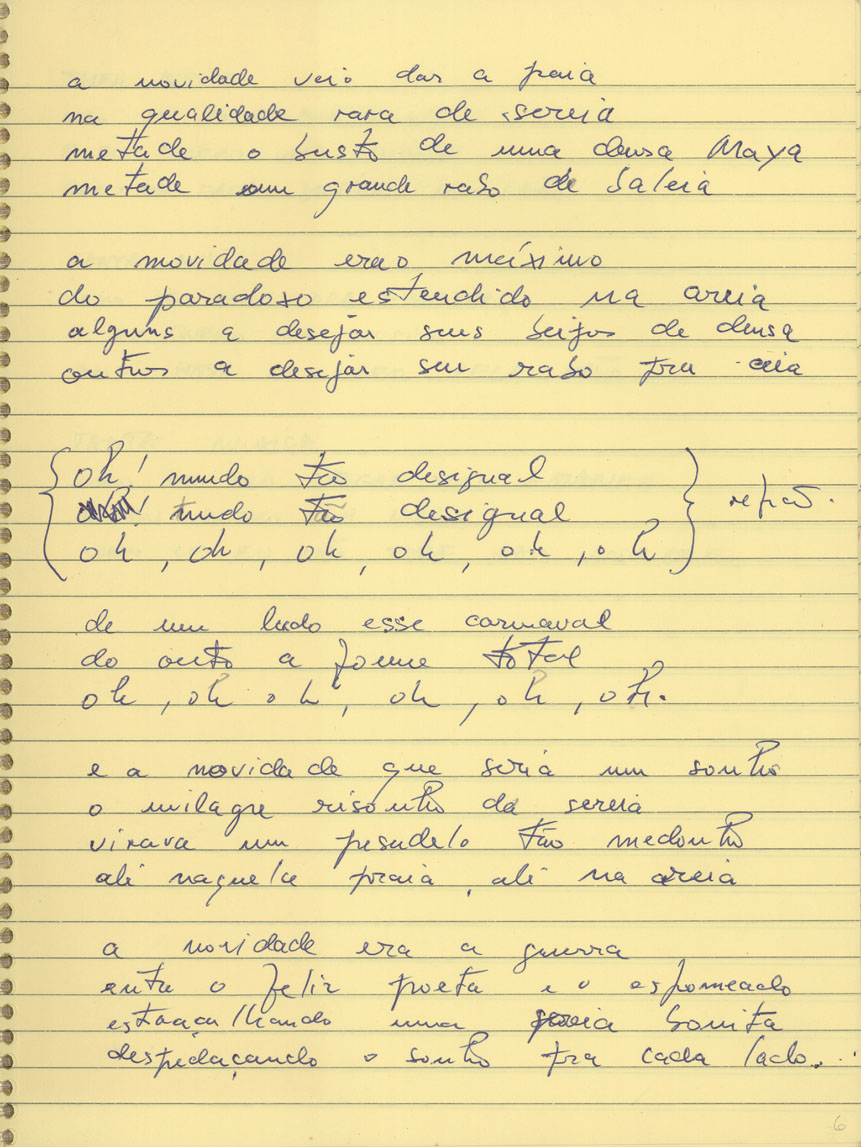 a novidade veio dar a praia
na qualidade rara de sereia
metade o busto de uma deusa Maya
metade um grande rabo de baleia
a novidade era o máximo
do paradoxo estendido na areia
alguns a desejar seus beijos de deusa
outros a desejar seu rabo pra ceia
oh! mundo tão desigual
tudo tão desigual
refrão.
oh, oh, oh, oh, oh, oh
de um lado esse carnaval
do outro a fome total
oh, oh oh, oh, oh, oh.
e a novidade que seria um sonho
o milagre risonho da sereia
virava um pesadelo tão medonho
ali naquela praia, ali na areia
a novidade era a guerra
entre o feliz poeta e o esfomeado
estraçalhando uma sereia bonita
despedaçando o sonho pra cada lado..
6